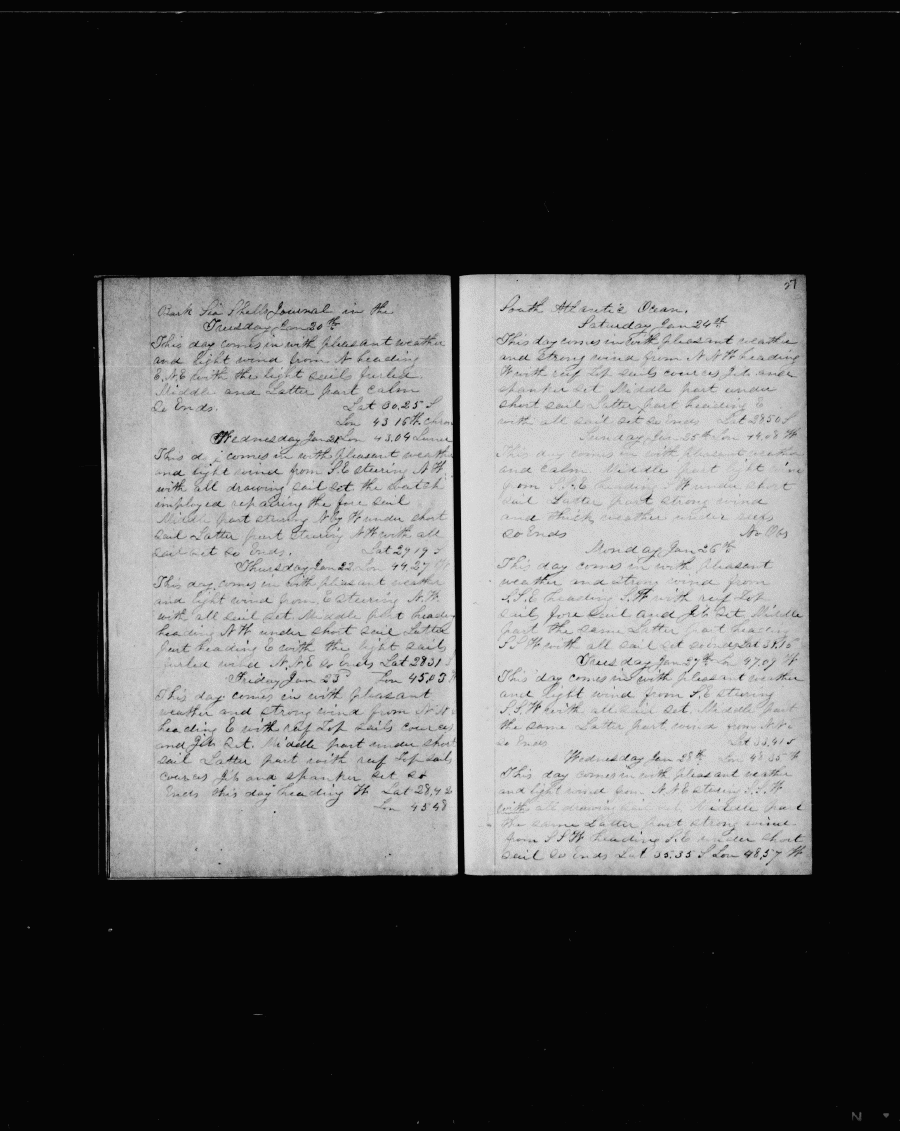 Bark Sea Shells Journal in the
Tuesday Jan 20th
This day comes in with pleasant weather
and light wind from N heading
E.N.E with the light sails furled
Middle and Latter part calm
So Ends. Lat 30.25 S
Lon 43 15 W Chron
Wednesday Jan 21 Lon 43.04 Lunar
This d comes in with pleasant weather
and light wind from S.E steering N.W.
with all drawing sail set the watch
imployed repairing the fore sail
Middle part steering N by W under short
sail Latter part stearing NW with all
sail set So Ends. Lat 29 19 S
Thursday Jan 22 Lon 44.27 W
This day comes in with pleasant weather
and light wind from E steering N.W.
with all sail set Middle part heading
heading N W under short sail Latter
part heading E with the light sails
furled wind N.N.E So Ends Lat 28 31 S
Friday Jan 23d Lon 45.03 W
This day comes in with pleasant
weather and strong wind from N
heading E with reef Top sails courses
and Jib set. Middle part under short
sail Latter part with reef Top sails
courses Jib and spanker set so
Ends this day heading W Lat 28,42
Lon 45 48
27
South Atlantic Ocean,
Saturday Jan 24th
This day comes in with pleasant weathe
and strong wind from N N W heading
W with reef Top sails courses Jib and
spanker set Middle part under
short sail Latter part heading E
with all sail set So Ends Lat 28 50 S
Sunday Jan 25th Lon 44.08 W
This day comes in with pleasant weather
and calm Middle part
from S.S.E heading S W under short
sail Latter part strong wind
and thick weather under
So Ends No Obs
Monday Jan 26th
This day comes in with pleasant
weather and strong wind from
S.S.E heading S.W with reef Top
sails fore sail and Jib set. Middle
part the same Latter part heading
S S W with all sail set so ends Lat
Tuesday Jan 27th Lon 47.09 W
This day comes in with pleasant weather
and light wind from S.E steering
S.S.W with all sail set. Middle part
the same Latter part wind from N
So Ends Lat 33,41 S
Wednesday Jan 28th Lon 48 35 W
This day comes in with pleasant weathe
and light wind from N.N.E steering S.S.W
with all drawing sail set Middle part
the same Latter part strong wind
from S S W heading S.E under short
sail So Ends Lat 35.35 S Lon 48,57 W
N